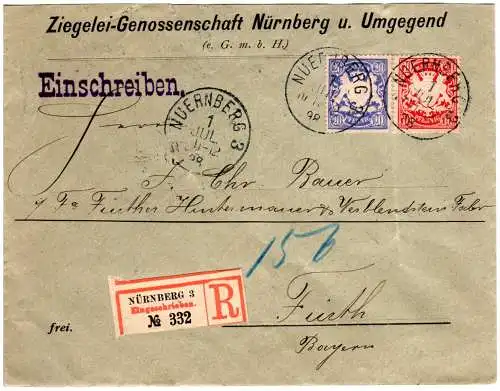 Ziegelei-Genossenschaft Nürnberg u. Umgegend
(e. G. m. b. H.)
Einschreiben.
NUERNBERG 3
1
JUL
98
NUERNBERG 3
1
JUL
98
20 20
NUERNBERG
1
98
J. Chr. Bauer
Fa Fürther Hintermauer & Verblendstein Fabr
156
NÜRNBERG 3
Eingeschrieben.
№ 332
R
Fürth
frei.
Bayern